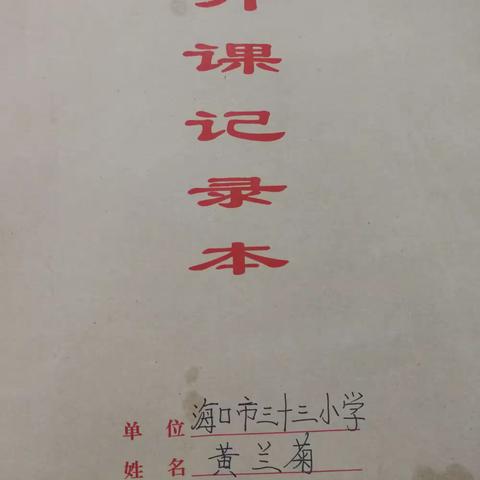 课
记
录
本
单位 海口市三十三小学
姓名 黄兰菊